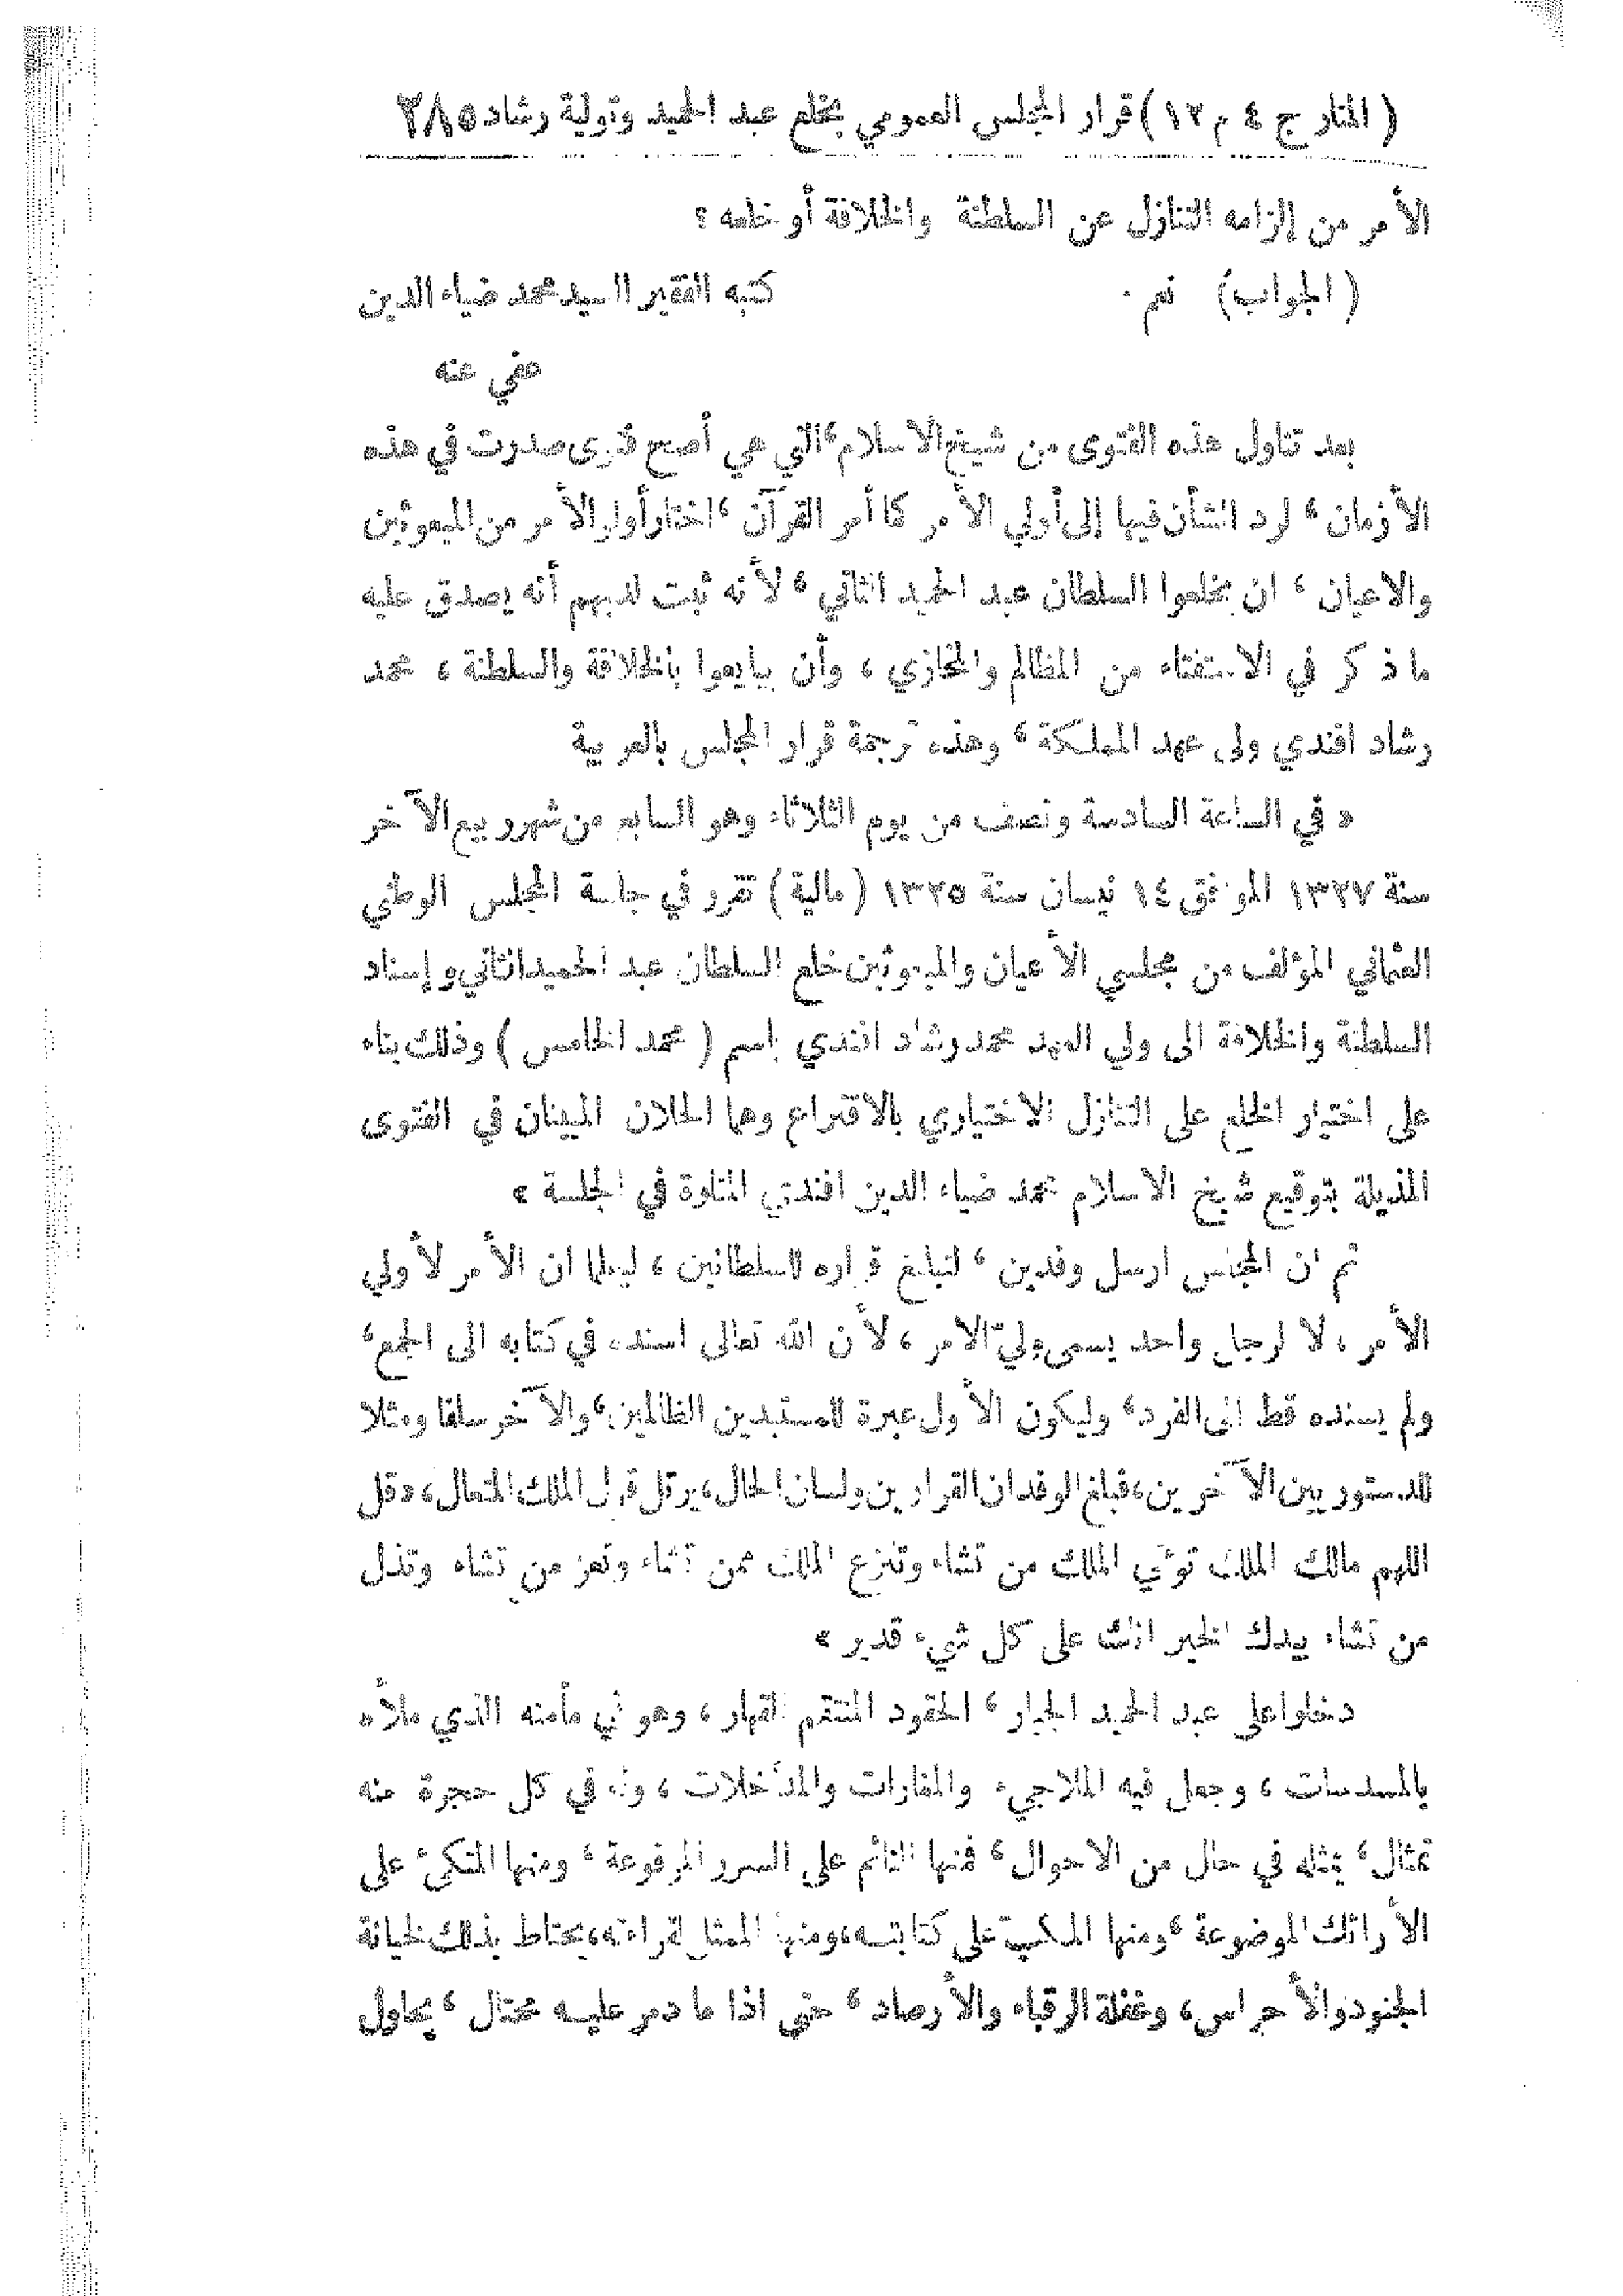 ( المنار ج ٤ م ١٢ ) قرار المجلس العمومي بخلع عبد الحميد وتولية رشاد ٢٨٥
الأمر من إلزامه التنازل عن السلطنة والخلافة أو خلعه ؟
( الجواب ) نعم . كتبه الفقير السيد محمد ضياء الدين
عفي عنه
بعد تناول هذه الفتوى من شيخ الاسلام ، التي هي أصح فتوى صدرت في هذه
الأزمان ، لرد الشأن فيها إلى أولي الأمر كما أمر القرآن ، اختار أولو الأمر من المبعوثين
والاعيان ، ان يخلعوا السلطان عبد الحميد الثاني ، لأنه ثبت لديهم أنه يصدق عليه
ما ذكر في الاستفتاء من المظالم والمخازي ، وأن يبايعوا بالخلافة والسلطنة ، محمد
رشاد افندي ولي عهد المملكة ، وهذه ترجمة قرار المجلس بالعربية
« في الساعة السادسة ونصف من يوم الثلاثاء وهو السابع من شهر ربيع الآخر
سنة ١٣٢٧ الموافق ١٤ نيسان سنة ١٣٢٥ ( مالية ) تقرر في جلسة المجلس الوطني
العثماني المؤلف من مجلسي الأعيان والمبعوثين خلع السلطان عبد الحميد الثاني وإسناد
السلطنة والخلافة الى ولي العهد محمد رشاد افندي باسم ( محمد الخامس ) وذلك بناء
على اختيار الخلع على التنازل الاختياري بالاقتراع وهما الحلان المبينان في الفتوى
المذيلة بتوقيع شيخ الاسلام محمد ضياء الدين افندي المتلوة في الجلسة »
ثم ان المجلس ارسل وفدين ، لتبليغ قراره للسلطانين ، ليعلما ان الأمر لأولي
الأمر ، لا لرجل واحد يسمى وليّ الامر ، لأن الله تعالى اسنده في كتابه الى الجمع ،
ولم يسنده قط الى الفرد ، وليكون الأول عبرة للمستبدين الظالمين ، والآخر سلفا ومثلا
للدستوريين الآخرين ، فبلغ الوفدان القرارين ولسان الحال ، يرتل قول الملك المتعال ، « قل
اللهم مالك الملك تؤتي الملك من تشاء وتنزع الملك ممن تشاء وتعز من تشاء وتذل
من تشاء بيدك الخير انك على كل شيء قدير »
دخلوا على عبد الحميد الجبار ، الحقود المنتقم القهار ، وهو في مأمنه الذي ملأه
بالمسدسات ، وجعل فيه الملاجيء والمغارات والمدّخلات ، وله في كل حجرة منه
تمثال ، يمثله في حال من الاحوال ، فمنها النائم على السرر المرفوعة ، ومنها المتكئ على
الأرائك الموضوعة ، ومنها المكبّ على كتابته ، ومنها الممثل لقراءته ، يحتاط بذلك لخيانة
الجنود والأحراس ، وغفلة الرقباء والأرصاد ، حتى اذا ما دمر عليه محتال ، يحاول